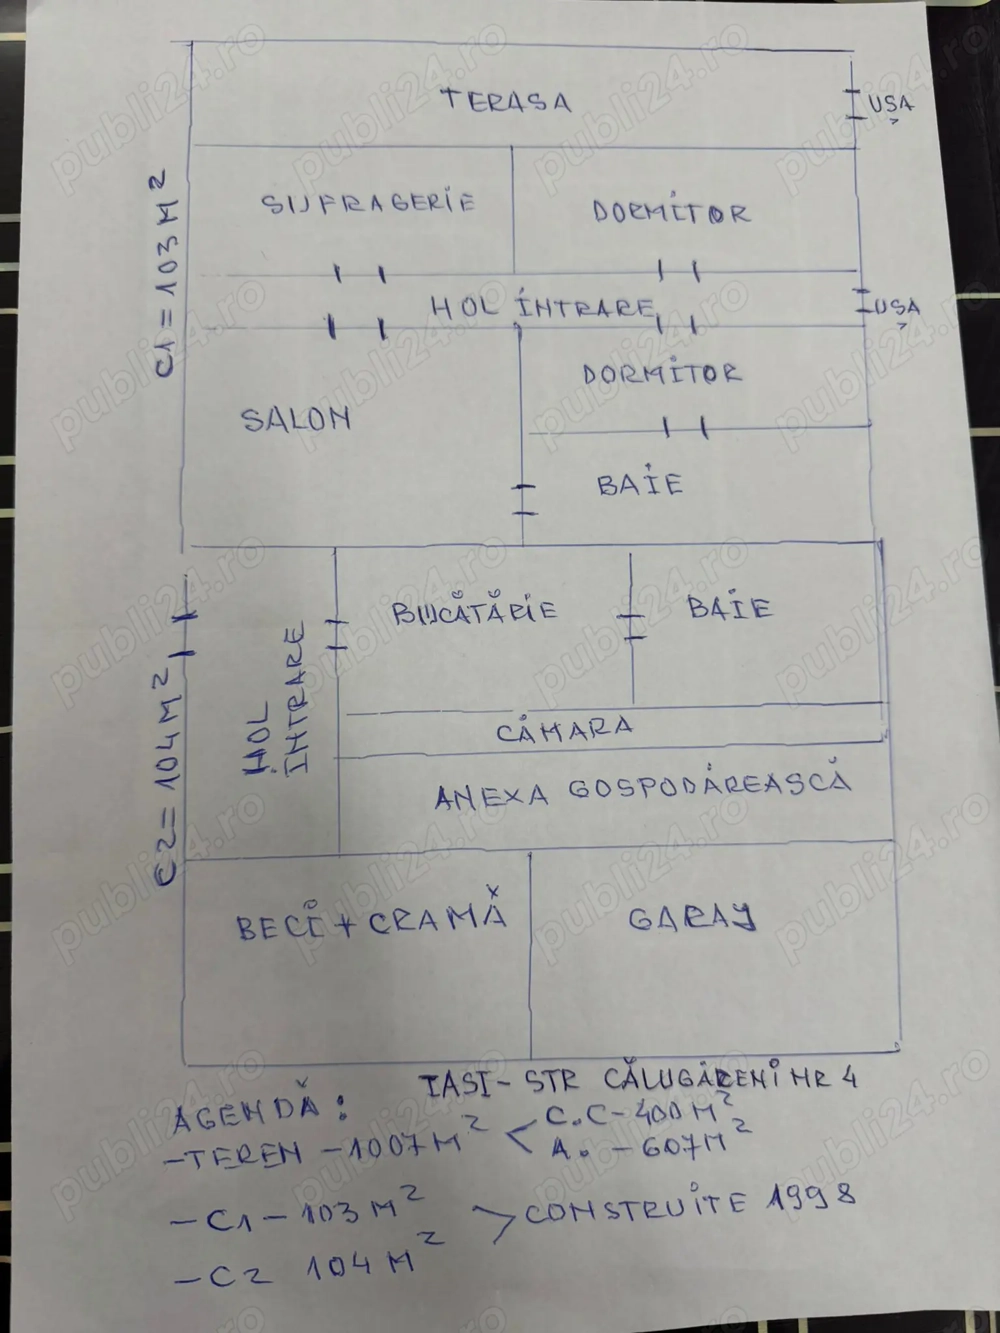 TERASA
UȘA
SUFRAGERIE
DORMITOR
C1 = 103 M²
HOL INTRARE
UȘA
DORMITOR
SALON
BAIE
BUCĂTĂRIE
BAIE
HOL INTRARE
C2 = 104 M²
CĂMARA
ANEXA GOSPODĂREASCĂ
BECI + CRAMĂ
GARAJ
IASI - STR CĂLUGĂRENI NR 4
AGENDĂ:
- TEREN - 1007 M² < C.C - 400 M²
A. - 607 M²
- C1 - 103 M² > CONSTRUITE 1998
- C2 104 M²
publi24.ro